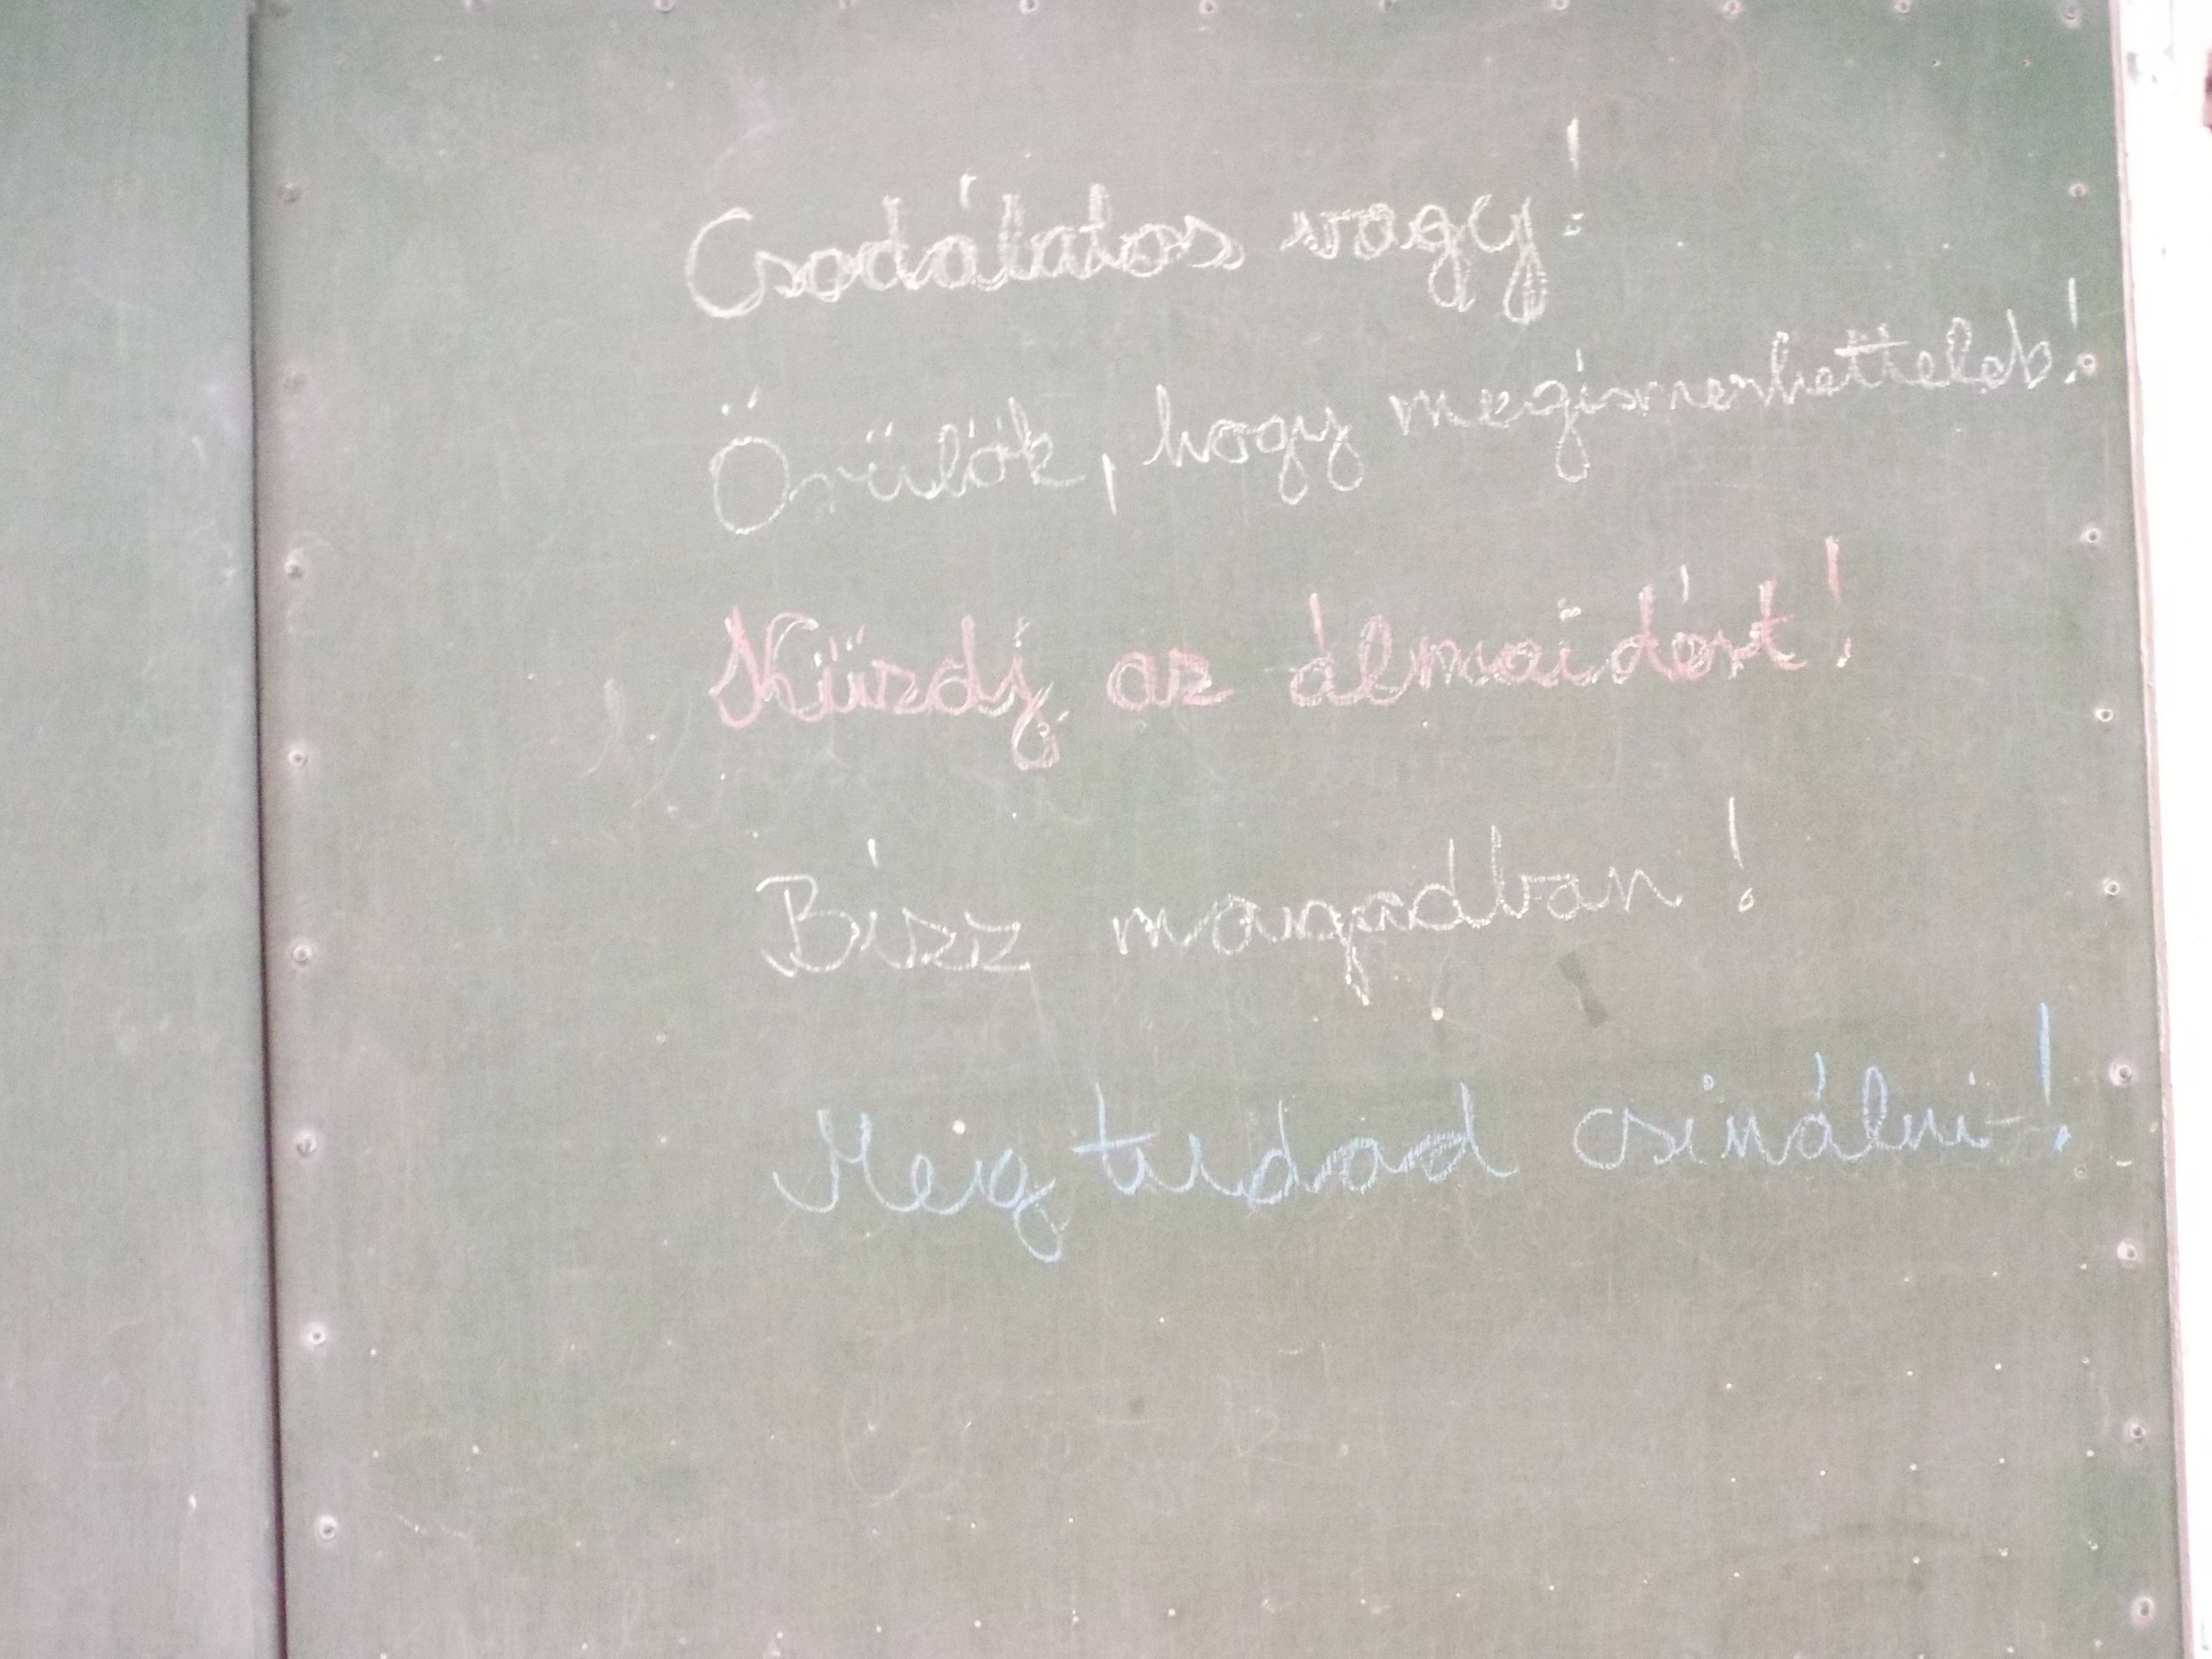 Csodálatos vagy!
Örülök, hogy megismerhettelek!
Küzdj az álmaidért!
Bízz magadban!
Meg tudod csinálni!